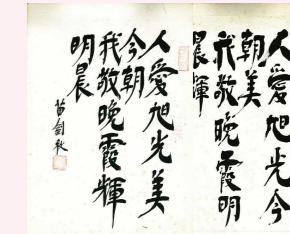 人愛旭光今
朝美
我敬晚霞明
晨暉
人愛旭光美
今朝
我敬晚霞輝
明晨
苗劍秋